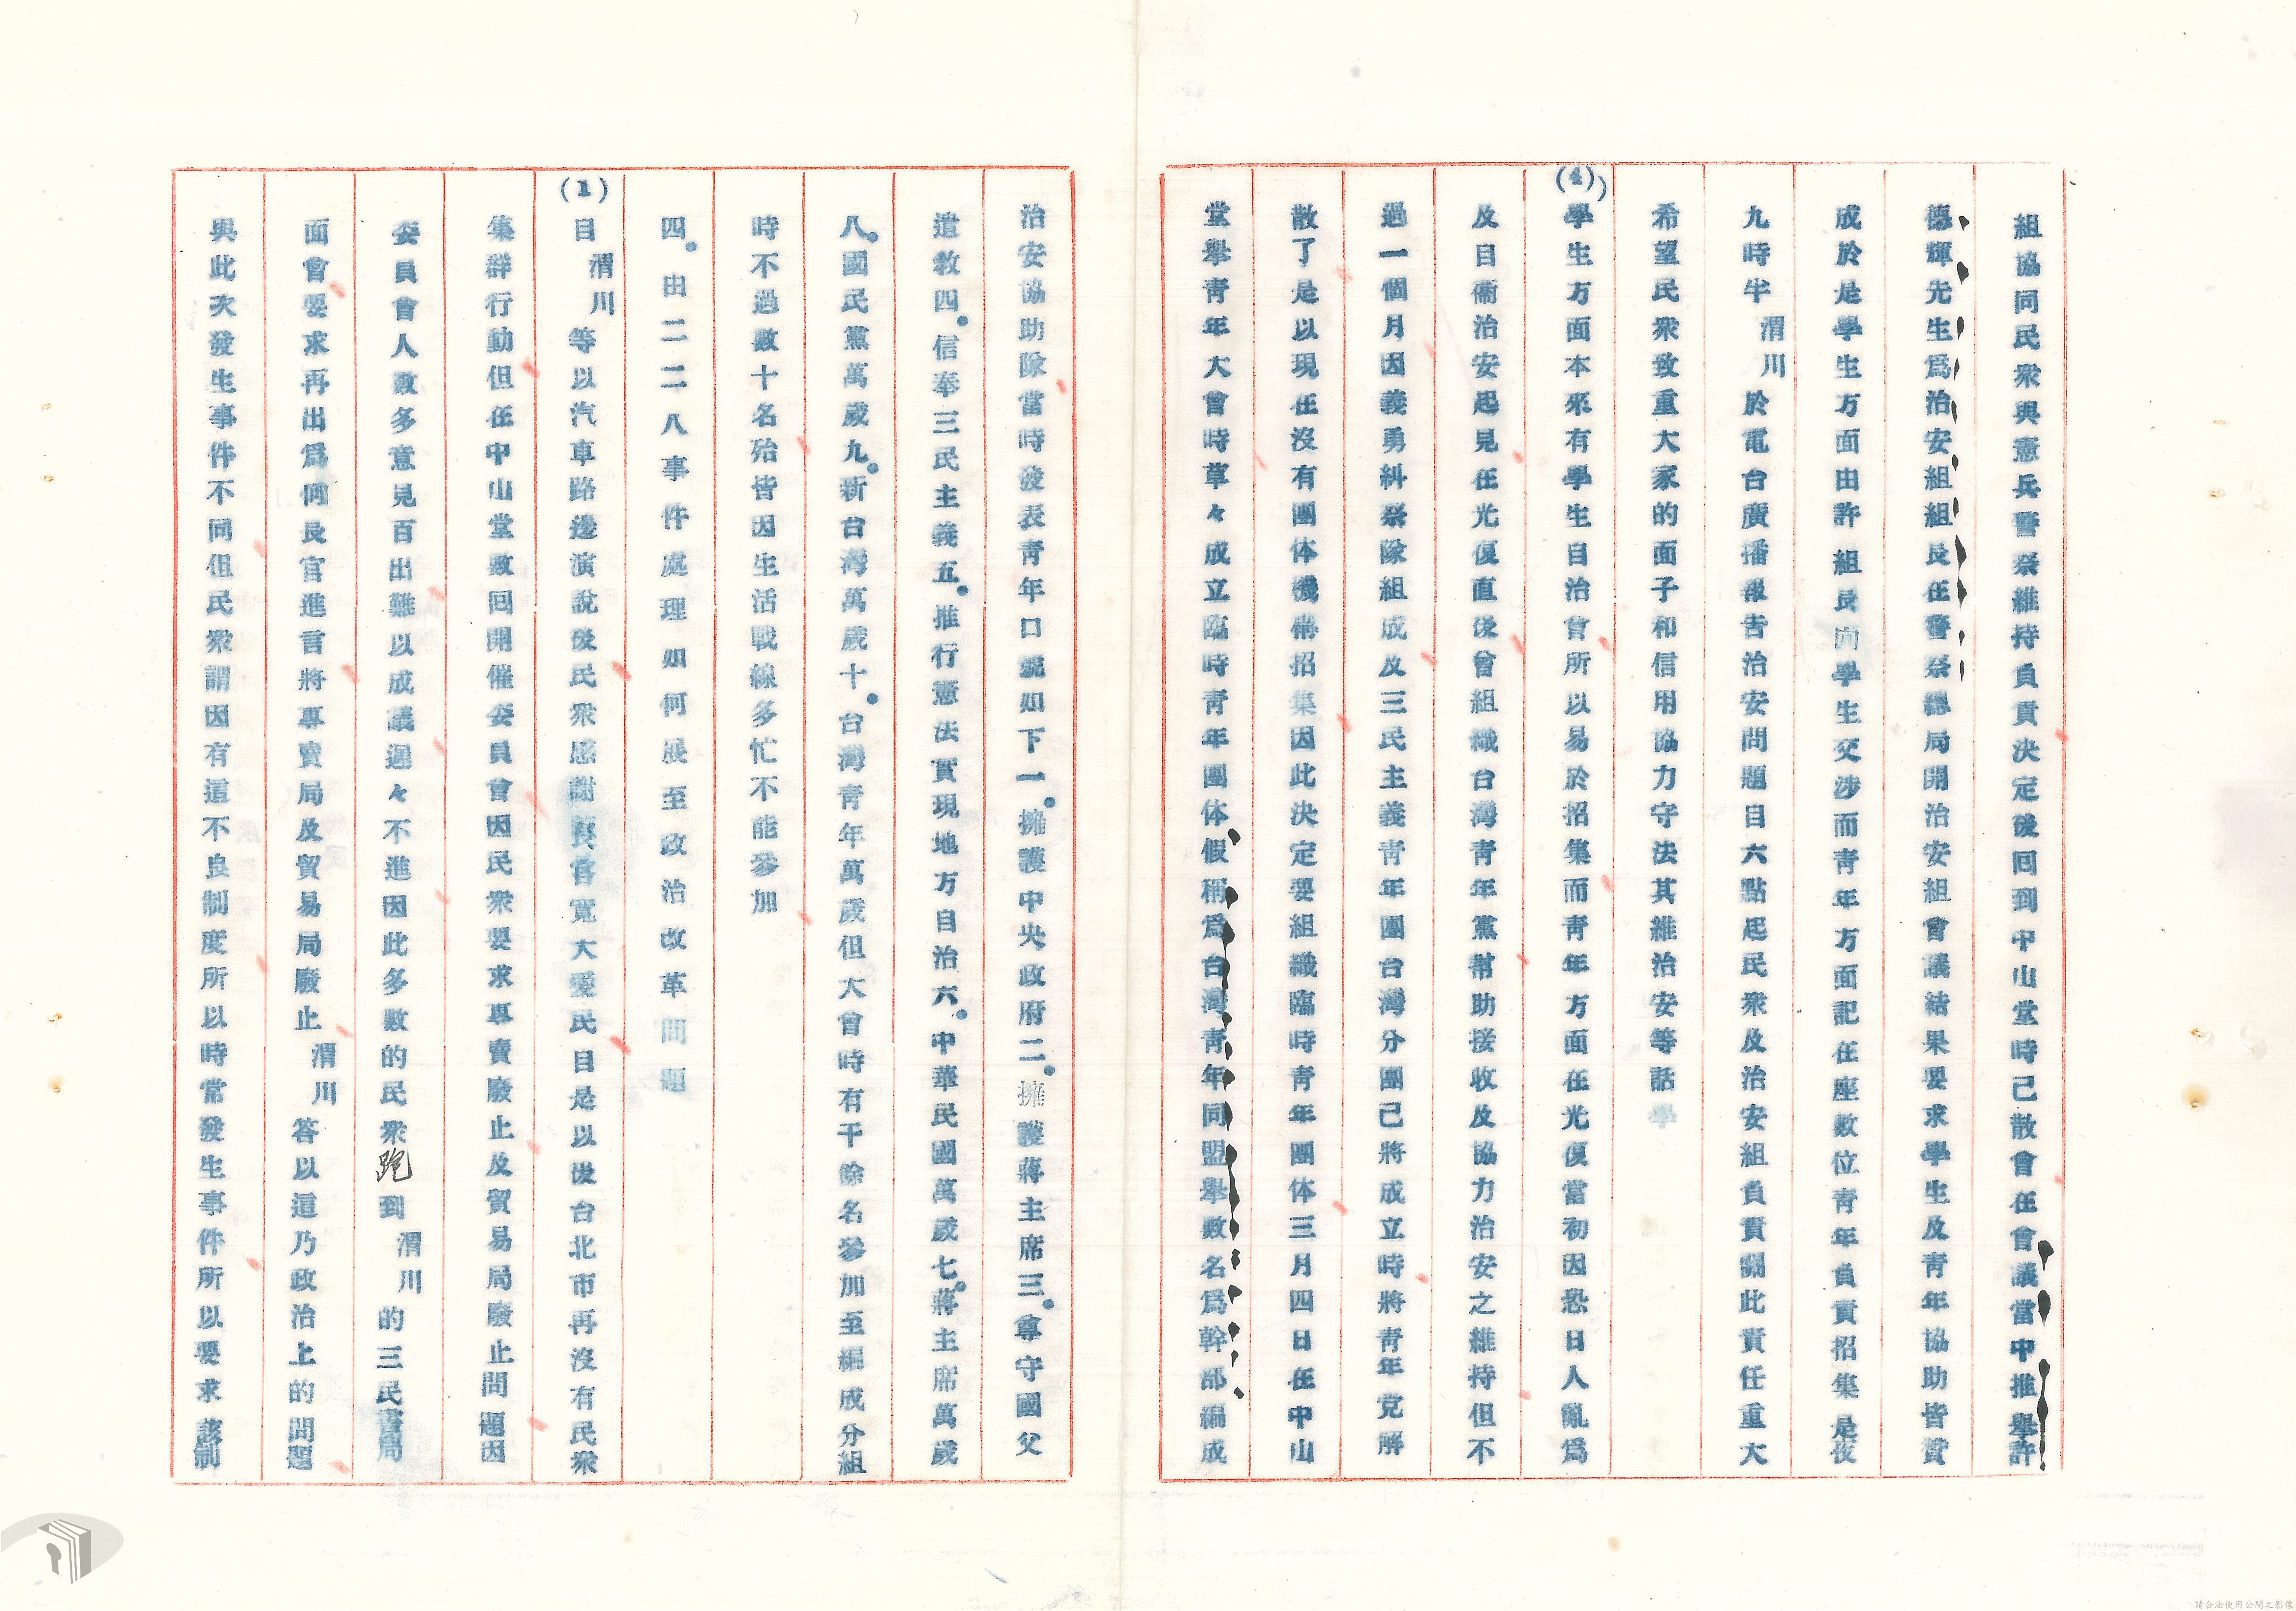 組協同民衆與憲兵警察維持負責決定後回到中山堂時已散會在會議當中推舉許
德輝先生爲治安組組長在警察總局開治安組會議結果要求學生及青年協助皆賛
成於是學生方面由許組長向學生交涉而青年方面記在座數位青年負責招集是夜
九時半渭川於電台廣播報告治安問題自六點起民衆及治安組負責關此責任重大
希望民衆致重大家的面子和信用協力守法其維治安等話學
(4) 學生方面本來有學生自治會所以易於招集而青年方面在光復當初因恐日人亂爲
及自衞治安起見在光復直後曾組織台灣青年黨幇助接收及協力治安之維持但不
過一個月因義勇糾察隊組成及三民主義青年團台灣分團已將成立時將青年党解
散了是以現在沒有團体機構招集因此決定要組織臨時青年團体三月四日在中山
堂舉青年大會時草々成立臨時青年團体假稱爲台灣青年同盟舉數名爲幹部編成
治安協助隊當時發表青年口號如下一。擁護中央政府二。擁護蔣主席三。尊守國父
遺教四。信奉三民主義五。推行憲法實現地方自治六。中華民國萬歲七。蔣主席萬歲
八。國民黨萬歲九。新台灣萬歲十。台灣青年萬歲但大會時有千餘名參加至編成分組
時不過數十名殆皆因生活戰線多忙不能參加
四。由二二八事件處理如何展至政治改革問題
(1) 自渭川等以汽車路邊演說後民衆感謝長官寬大愛民自是以後台北市再沒有民衆
集群行動但在中山堂數回開催委員會因民衆要求專賣廢止及貿易局廢止問題因
委員會人數多意見百出難以成議遲々不進因此多數的民衆跑到渭川的三民書局
面會要求再出爲向長官進言將專賣局及貿易局廢止渭川答以這乃政治上的問題
與此次發生事件不同但民衆謂因有這不良制度所以時常發生事件所以要求該制
請合法使用公開之影像